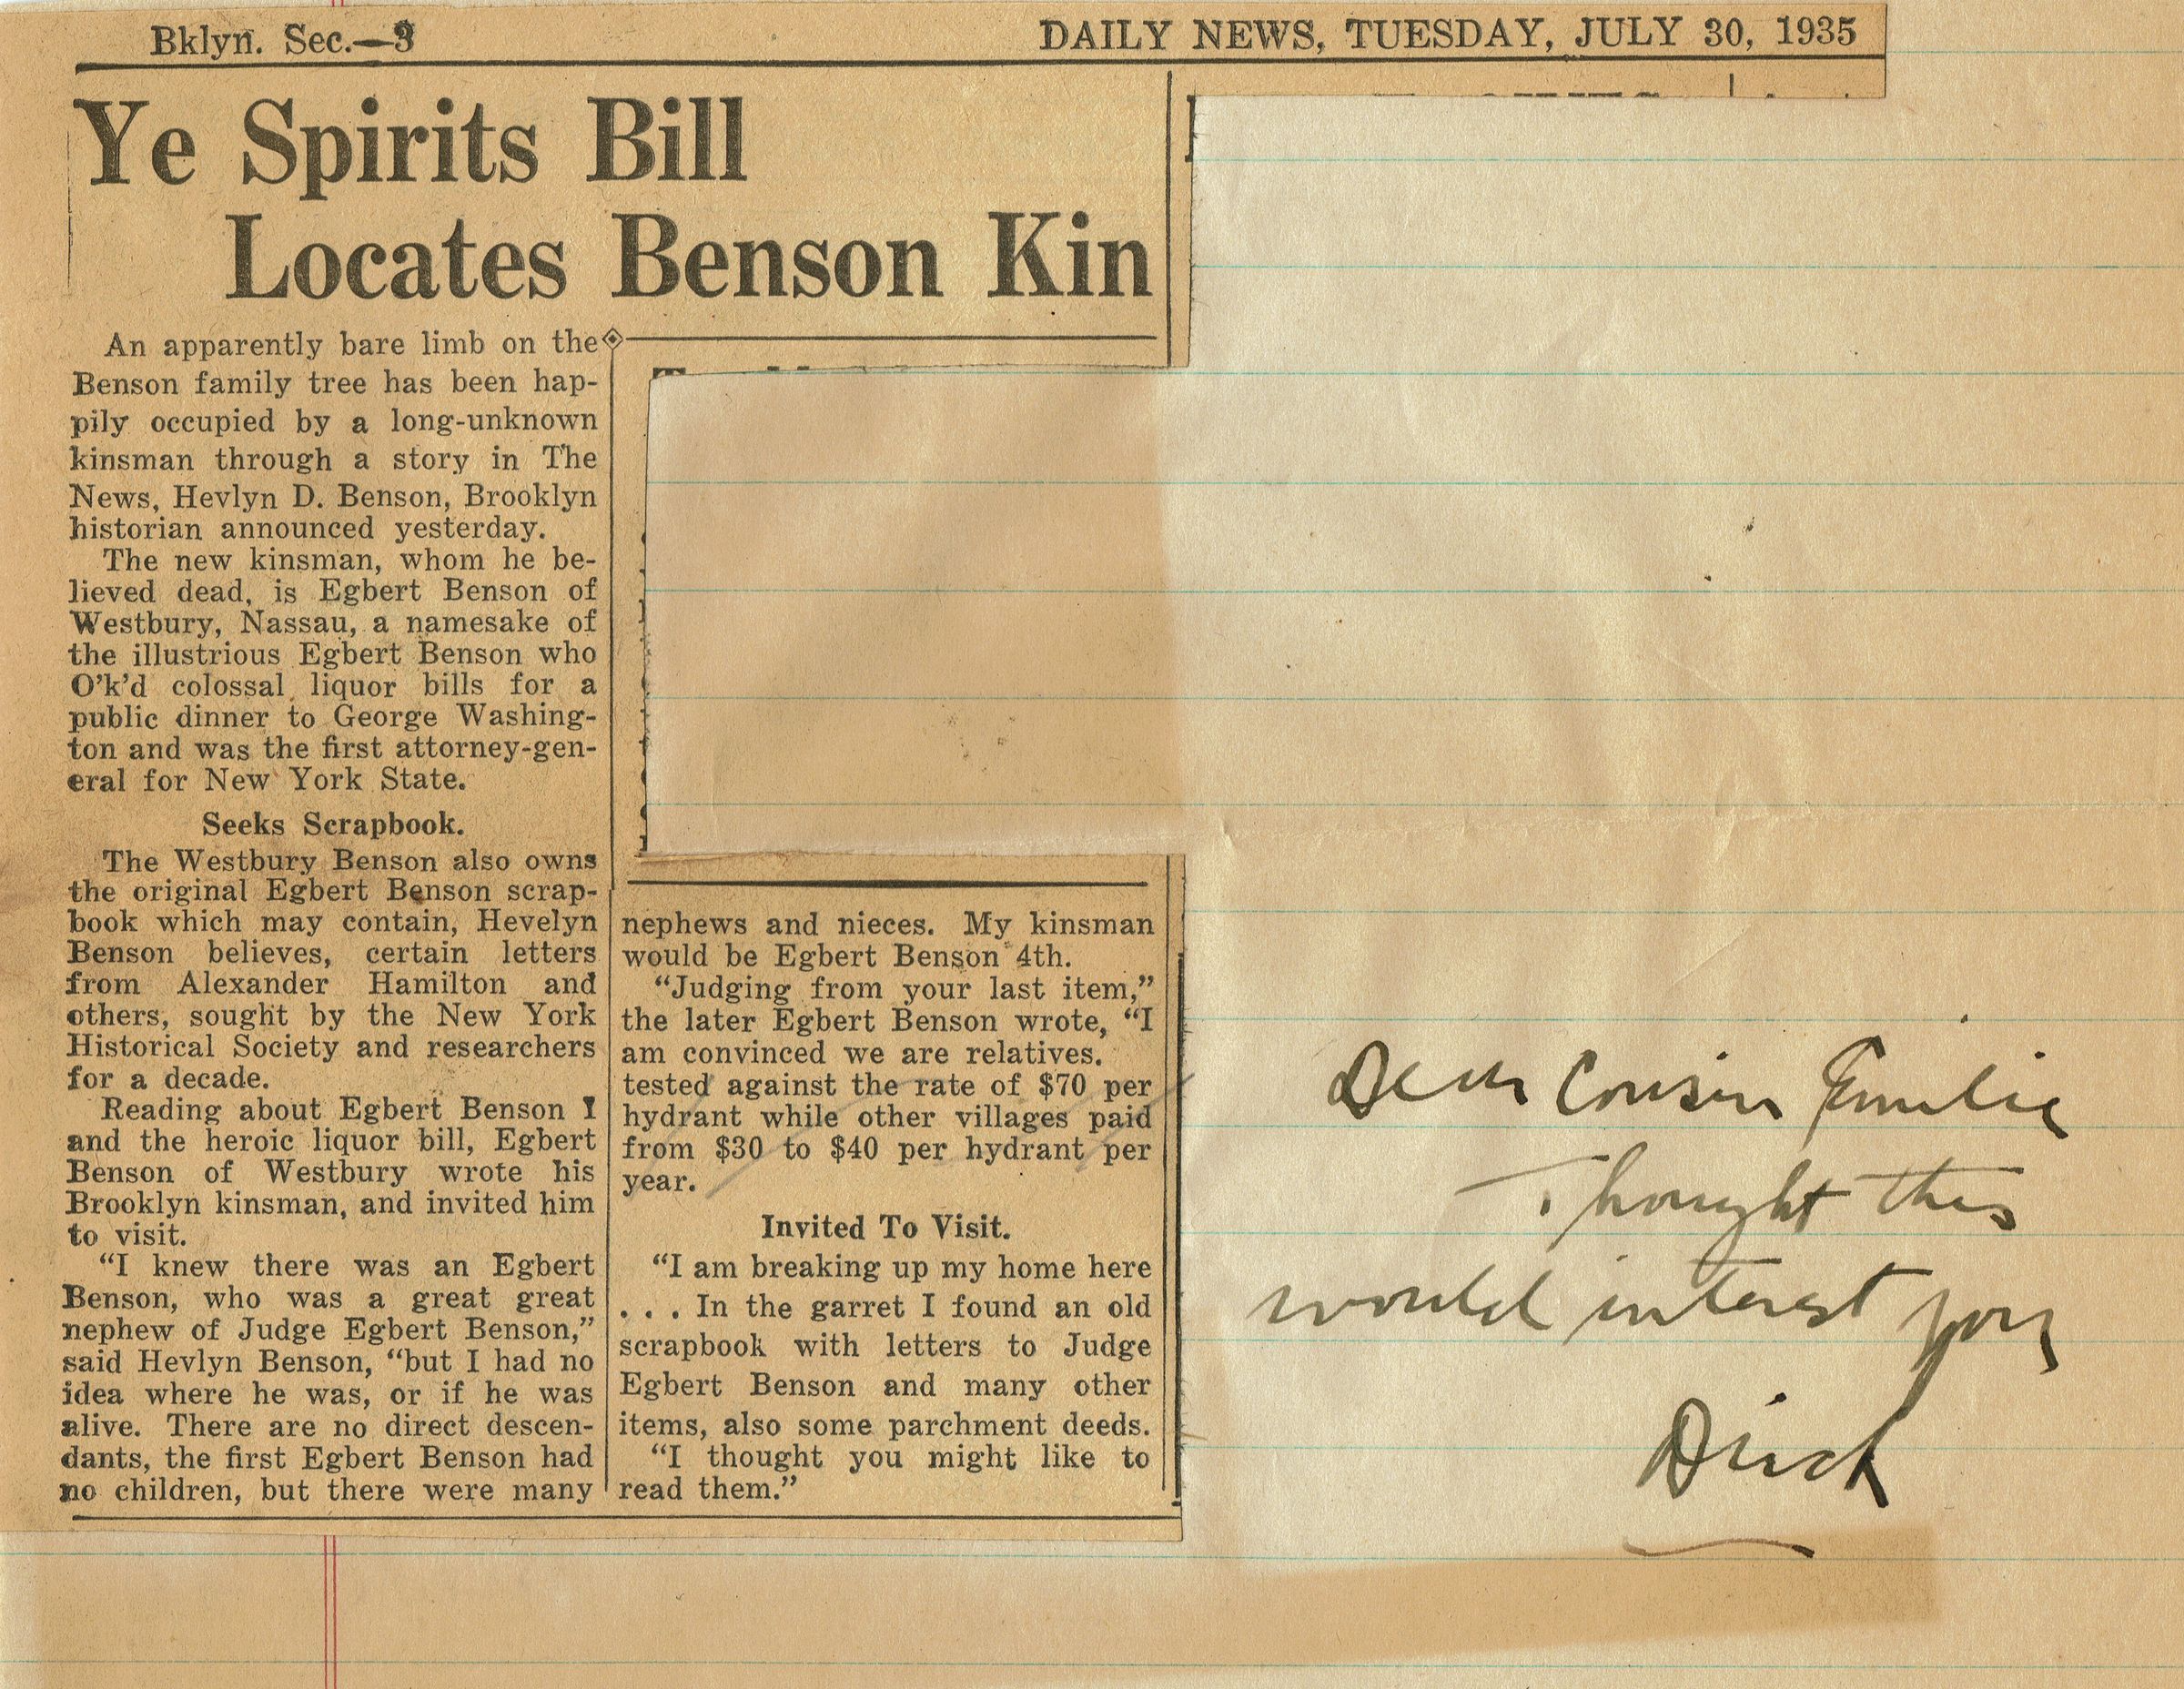 Bklyn. Sec.—3
DAILY NEWS, TUESDAY, JULY 30, 1935
Ye Spirits Bill
Locates Benson Kin
An apparently bare limb on the
Benson family tree has been hap-
pily occupied by a long-unknown
kinsman through a story in The
News, Hevlyn D. Benson, Brooklyn
historian announced yesterday.
The new kinsman, whom he be-
lieved dead, is Egbert Benson of
Westbury, Nassau, a namesake of
the illustrious Egbert Benson who
O'k'd colossal liquor bills for a
public dinner to George Washing-
ton and was the first attorney-gen-
eral for New York State.
Seeks Scrapbook.
The Westbury Benson also owns
the original Egbert Benson scrap-
book which may contain, Hevelyn
Benson believes, certain letters
from Alexander Hamilton and
others, sought by the New York
Historical Society and researchers
for a decade.
Reading about Egbert Benson I
and the heroic liquor bill, Egbert
Benson of Westbury wrote his
Brooklyn kinsman, and invited him
to visit.
"I knew there was an Egbert
Benson, who was a great great
nephew of Judge Egbert Benson,"
said Hevlyn Benson, "but I had no
idea where he was, or if he was
alive. There are no direct descen-
dants, the first Egbert Benson had
no children, but there were many
nephews and nieces. My kinsman
would be Egbert Benson 4th.
"Judging from your last item,"
the later Egbert Benson wrote, "I
am convinced we are relatives.
tested against the rate of $70 per
hydrant while other villages paid
from $30 to $40 per hydrant per
year.
Invited To Visit.
"I am breaking up my home here
. . . In the garret I found an old
scrapbook with letters to Judge
Egbert Benson and many other
items, also some parchment deeds.
"I thought you might like to
read them."
Dear Cousin Emilie
Thought this
would interest you
Dick